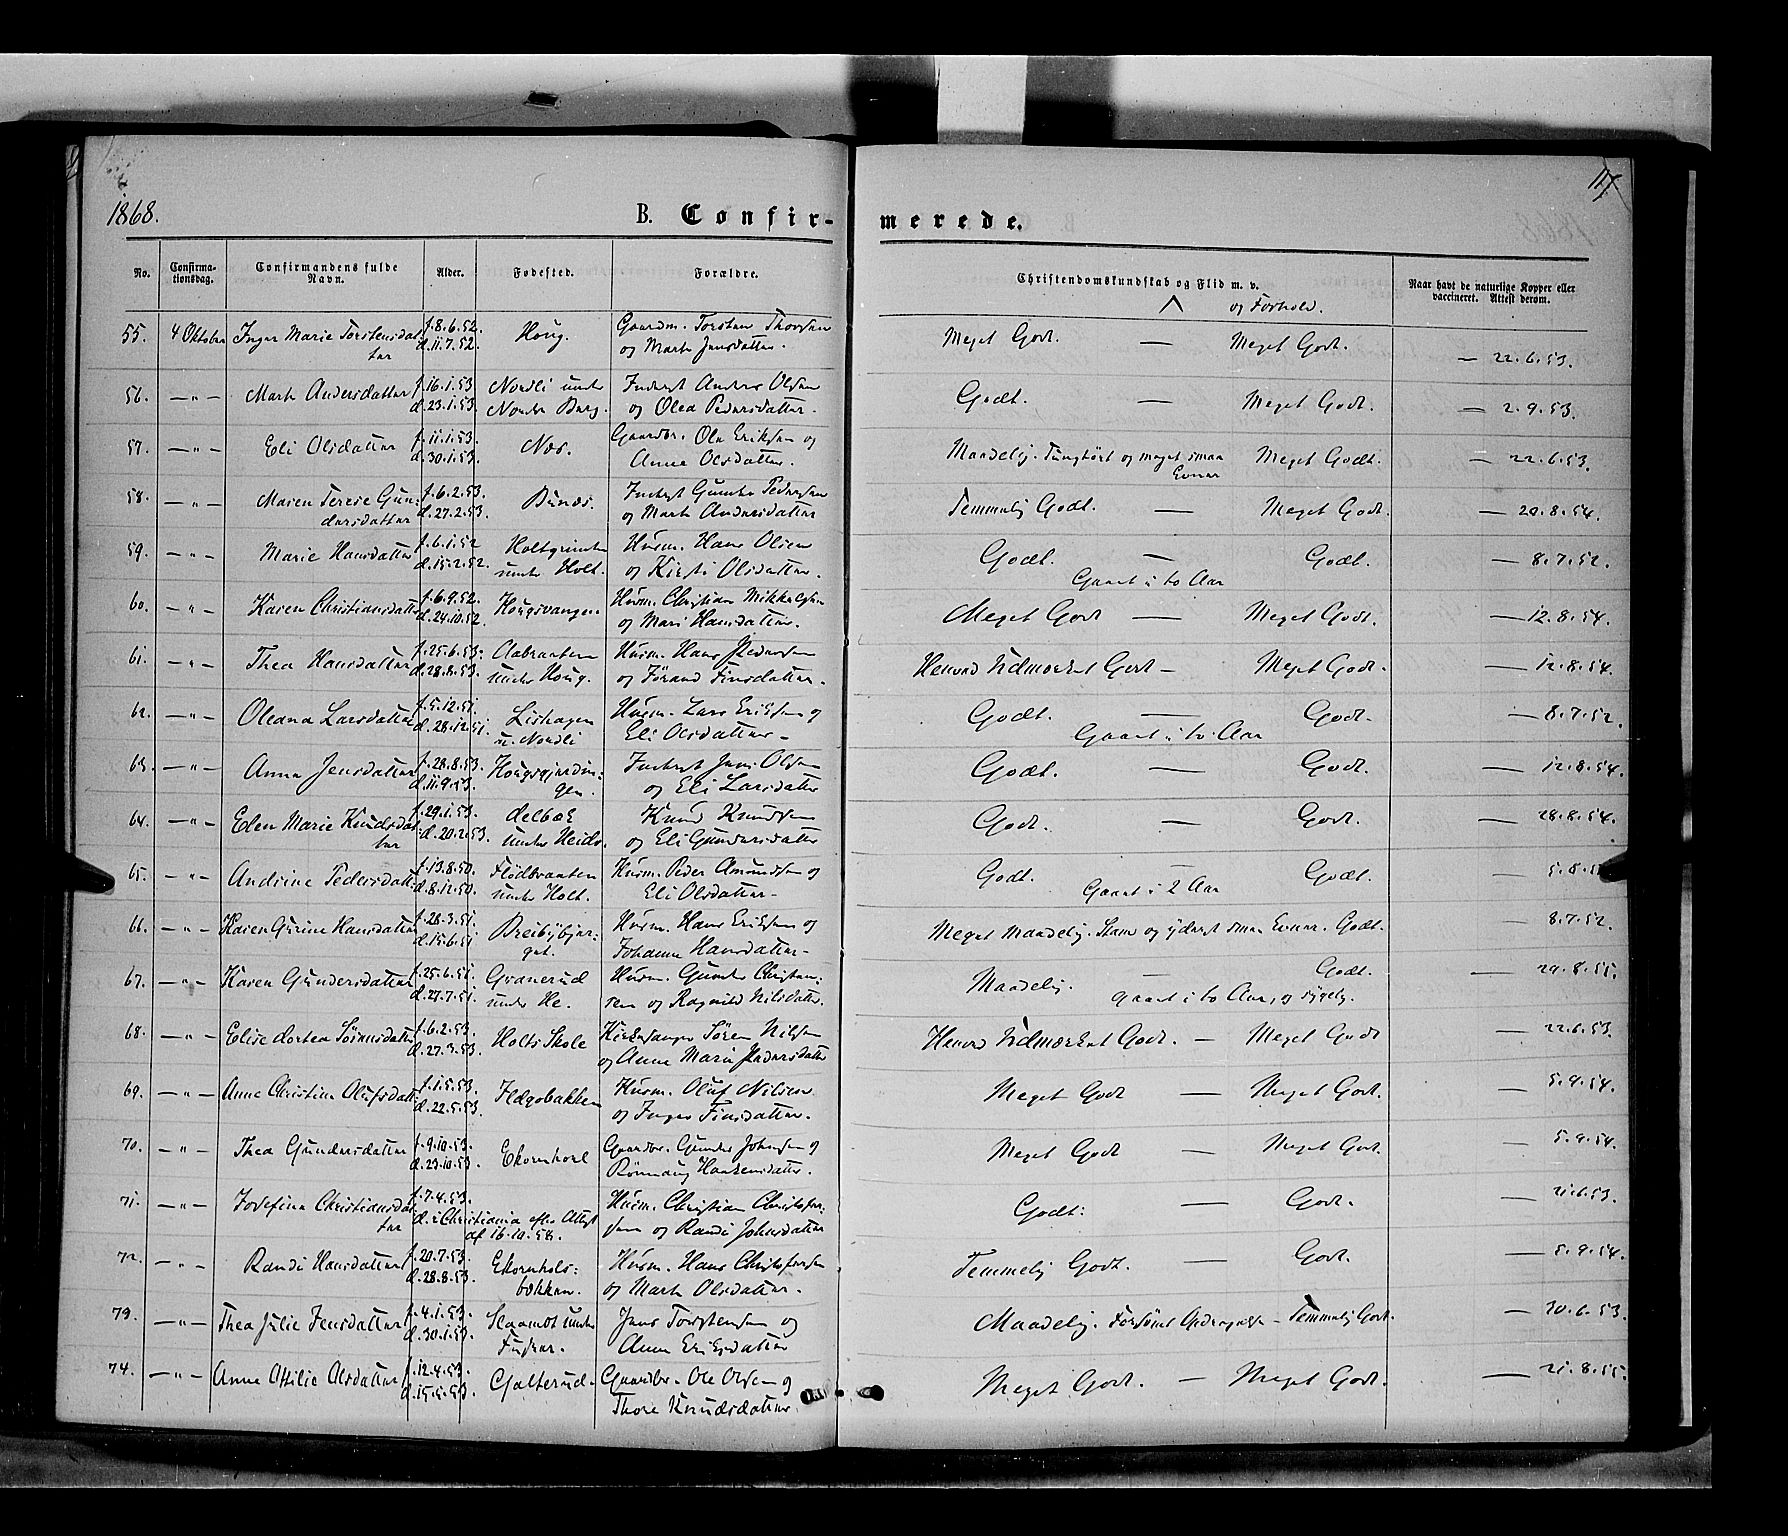 117
1868.
B. Confir-
merede.
No.
Confirma-
tionsdag.
Confirmandens fulde
Navn.
Alder.
Fødested.
Forældre.
Christendomskundskab og Flid m. v.
og Forhold.
Naar havt de naturlige Kopper eller
vaccineret. Attest derom.
55. 4 Oktober Inger Marie Torstensdat- f. 8.6.52. Houg. Gaardm. Torsten Thorsen Meget Godt. — Meget Godt. — 22.6.53.
ter d. 11.7.52. og Marte Jensdatter.
56. — " — Marte Andersdatter f. 16.1.53. Nordli under Inderst Anders Olsen Godt. — Meget Godt. — 2.9.53.
d. 23.1.53. Nordre Berg. og Olea Pedersdatter.
57. — " — Eli Olsdatter f. 11.1.53. Nes. Gaardbr. Ole Eriksen og Maadelig. Tunghørt og meget smaa Meget Godt. — 22.6.53.
d. 30.1.53. Anne Olsdatter. Evner
58. — " — Maren Terese Gun- f. 6.2.53. Bunes. Inderst Gunder Pedersen Temmelig Godt. — Meget Godt. — 20.8.54.
dersdatter d. 27.2.53. og Marte Andersdatter
59. — " — Marie Hansdatter f. 6.1.52 Holtgrinden Husm. Hans Olsen Godt. — Godt. — 8.7.52.
d. 15.2.52. under Holt. og Kirsti Olsdatter. Gaaet i to Aar
60. — " — Karen Christiansdatter f. 6.9.52. Hougsvangen Husm. Christian Mikkelsen Meget Godt — Meget Godt. — 12.8.54.
d. 24.10.52. og Mari Hansdatter.
61. — " — Thea Hansdatter f. 25.6.53. Aabraaten Husm. Hans Pedersen Henved Udmærket Godt — Meget Godt. — 12.8.54.
d. 28.8.53. under Houg. og Jørand Finsdatter.
62. — " — Oleana Larsdatter f. 5.12.51. Lishagen Husm. Lars Eriksen og Godt. — Godt. — 8.7.52.
d. 28.12.51. u. Nordli Eli Olsdatter — Gaaet i to Aar
63. — " — Anna Jensdatter f. 28.8.53. Hougsgjerdin- Inderst Jens Olsen Godt. — Godt. — 12.8.54.
d. 11.9.53. gen. og Eli Larsdatter
64. — " — Elen Marie Knudsdat- f. 29.1.53. delbæk Knud Knudsen Godt. — Godt. — 28.8.54.
ter d. 20.2.53. under Heidr. og Eli Gundersdatter
65. — " — Andrine Pedersdatt. f. 13.8.50. Flødbraaten Husm. Peder Amundsen og Godt. — Godt. — 5.8.
d. 8.12.50. under Holt. Eli Olsdatter — Gaaet i 2 Aar
66. — " — Karen Gurine Hansdatter f. 28.3.51. Breibybjer- Husm. Hans Eriksen og Meget maadelig. Stam og yderst smaa Evner. Godt. — 8.7.52.
d. 15.6.51. get. Johanne Hansdatter —
67. — " — Karen Gundersdatter f. 25.6.51. Granerud Husm. Gunder Christen- Maadelig. — Godt. — 29.8.55.
d. 27.7.51. under He. sen og Ragnild Nilsdatter. gaaet i to Aar, og sygelig.
68. — " — Elise Dortea Sørensdatter f. 6.2.53. Holts Skole Kirkesanger Søren Nilsen Henved Udmærket Godt. — Meget Godt — 22.6.53.
d. 27.3.53. og Anne Marie Pedersdatter
69. — " — Anne Christine Olufsdatt. f. 1.5.53. Hægsbakken Husm. Oluf Nilsen Meget Godt — Meget Godt. — 5.9.54.
d. 22.5.53. og Inger Finsdatter.
70. — " — Thea Gundersdatter f. 9.10.53. Ekornhoel Gaardbr. Gunder Johnsen og Meget Godt — Meget Godt. — 5.9.54.
d. 23.10.53. Rønnaug Haakensdatter.
71. — " — Josefine Christiansdat- f. 7.4.53. Husm. Christian Christofer- Godt: — Godt. — 21.6.53.
ter d. i Christiania efter Attest sen og Randi Johnsdatter
af 16.10.58.
72. — " — Randi Hansdatter f. 20.7.53. Ekornhols- Husm. Hans Christofersen Temmelig Godt. — Godt. — 5.9.54.
d. 28.8.53. bækken. og Marte Olsdatter.
73. — " — Thea Julie Jensdatter f. 4.1.53. under Jens Torstensen og Maadelig. Forsømt — Temmelig Godt. — 20.6.53.
d. 30.1.53. Anne Eriksdatter
74. — " — Anne Otilie Olsdatter f. 12.4.53. Gjalterud — Gaardbr. Ole Olsen og Meget Godt. — Meget Godt. — 21.8.55.
d. 15.5.53 Thore Knudsdatter.